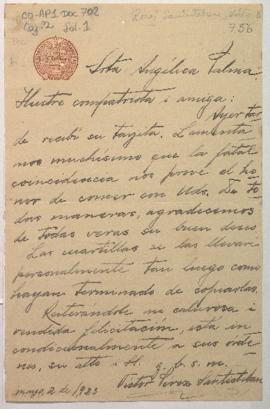 CO-AP1 DOC 702
Caj. 22
fol. 1
756
Srta Angélica Palma.
Ilustre compatriota i amiga:
Ayer tar
de recibí su tarjeta. Lamenta
mos muchísimo que la fatal
coincidencia nos prive el ho
nor de comer con Uds. De to
das maneras, agradecemos
de todas veras su buen deseo.
Las cuartillas se las llevaré
personalmente tan luego como
hayan terminado de copiarlas.
Reiterándole mi calurosa i
rendida felicitación, está in
condicionalmente a sus orde
nes, su atto i
q. b. s. m.
Victor
mayo, 2 de 1923